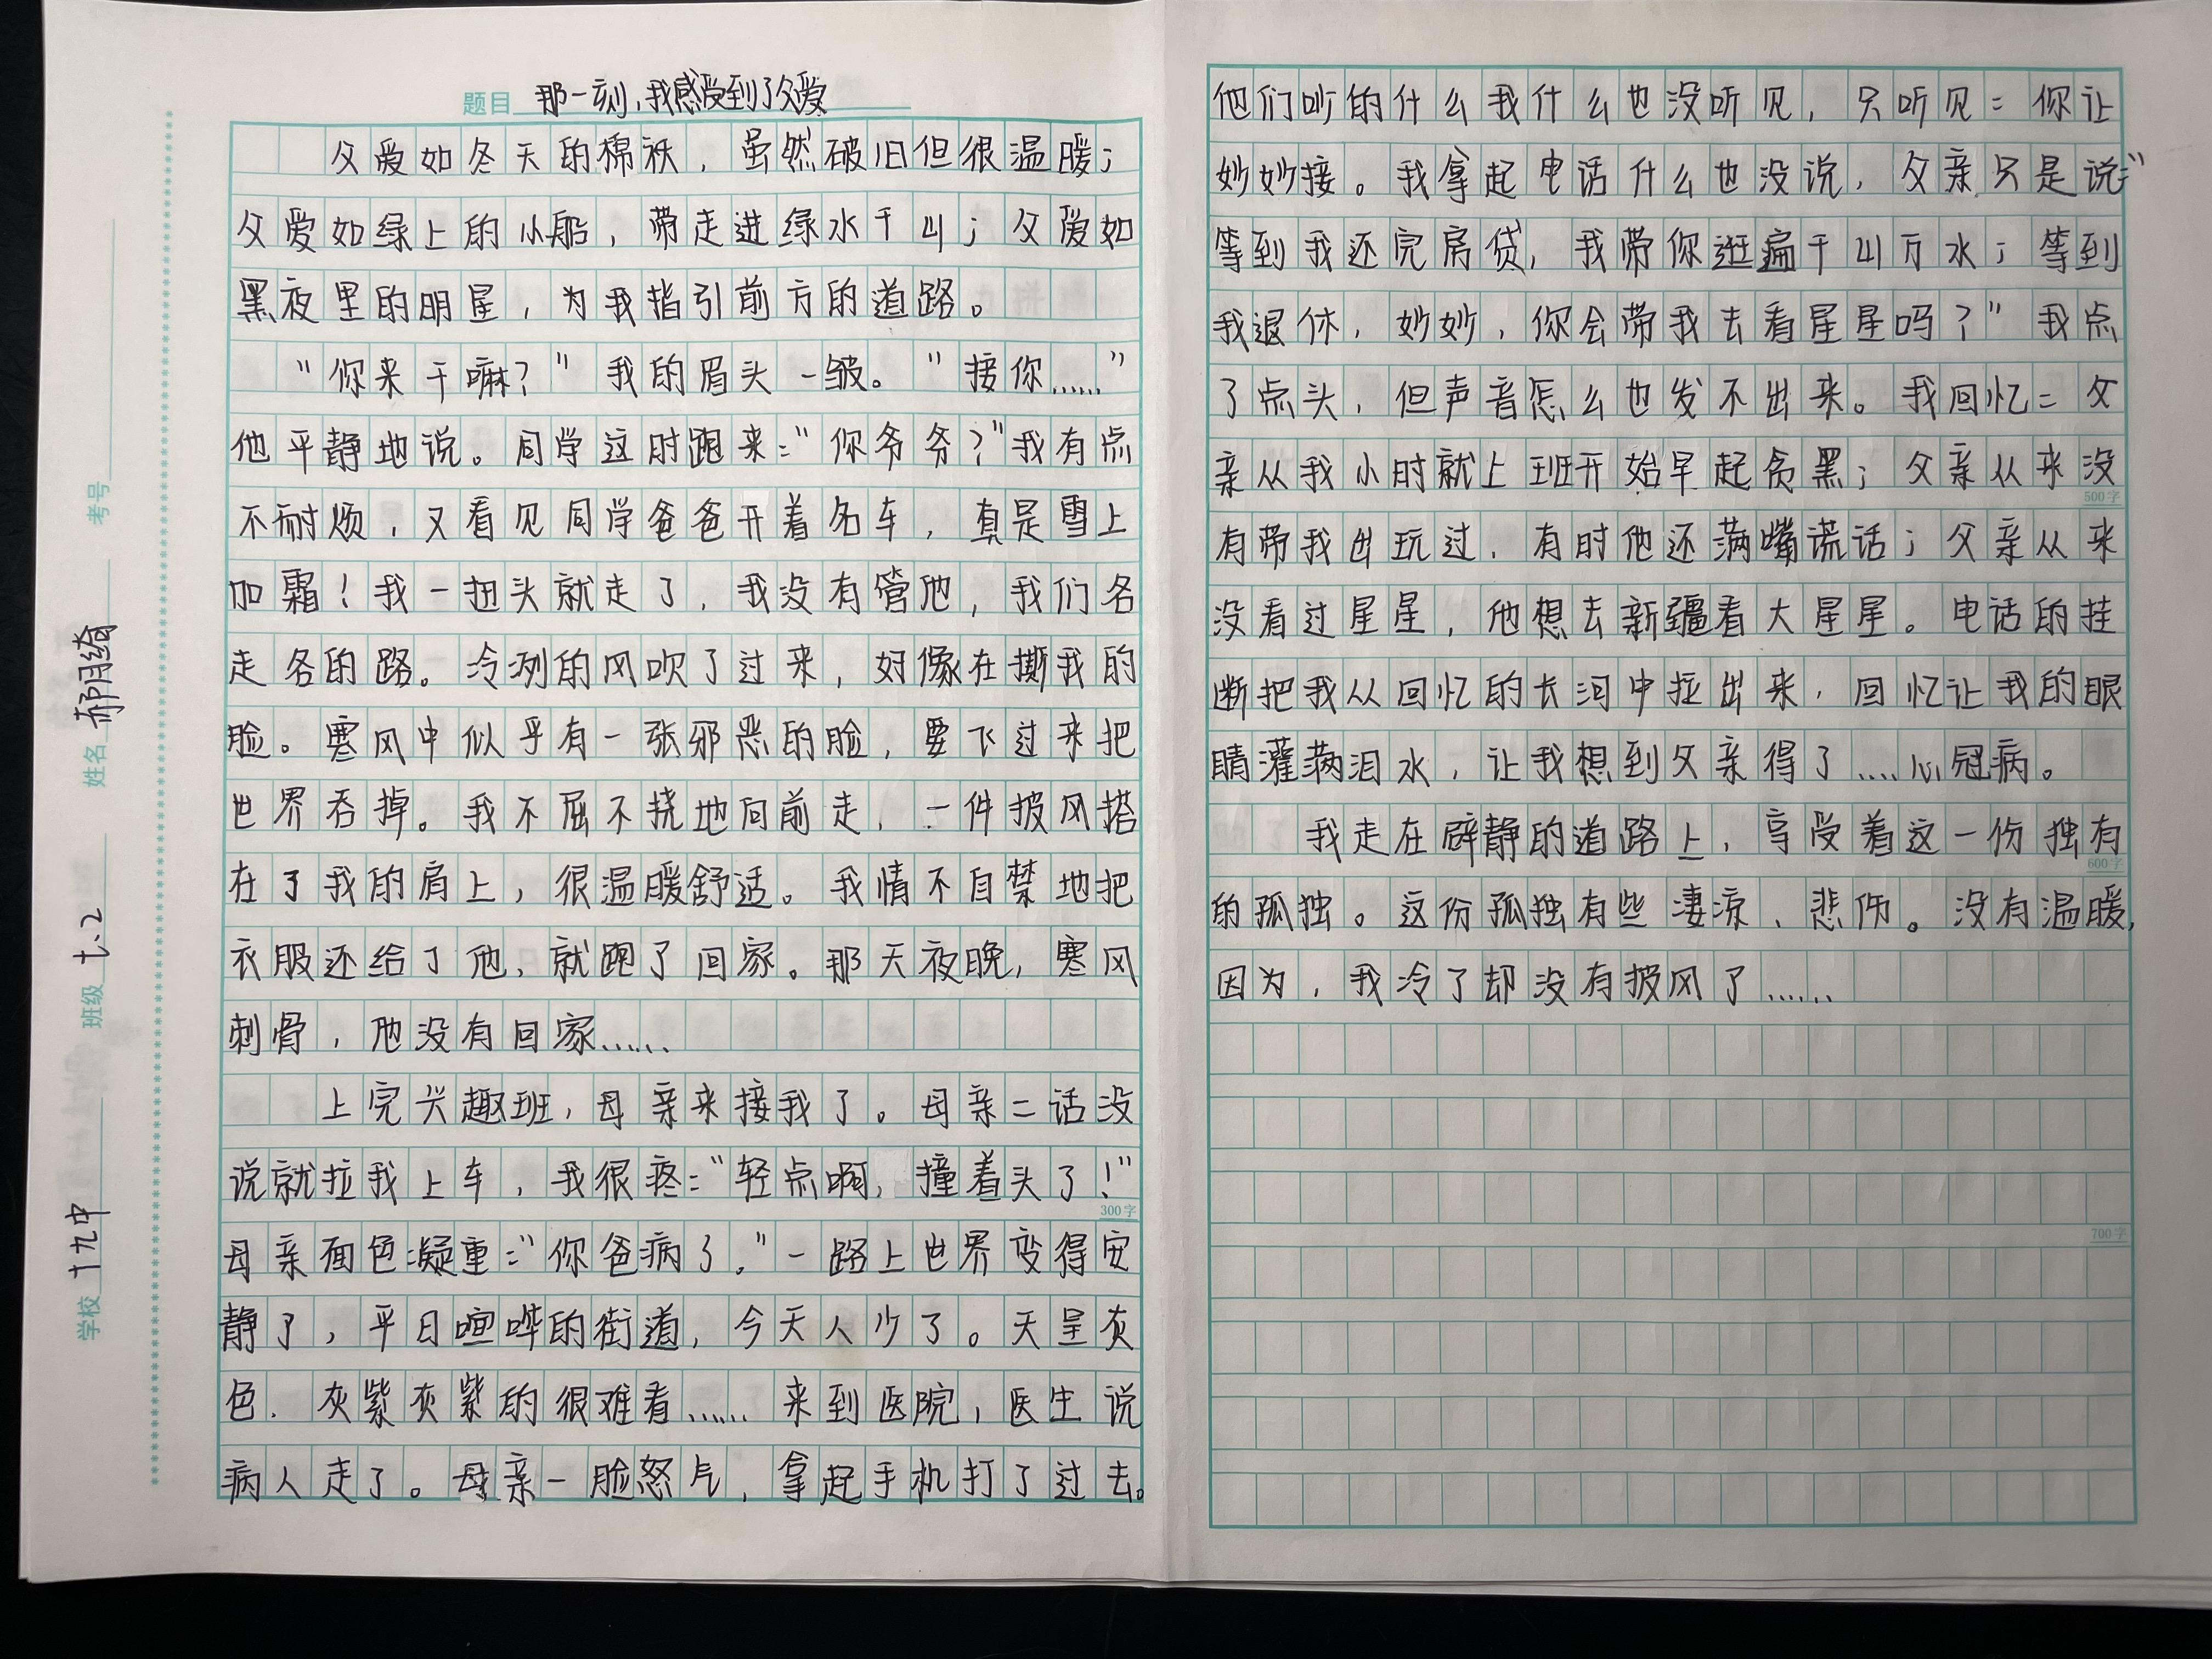 题目 那一刻，我感受到了父爱
父爱如冬天的棉袄，虽然破旧但很温暖；
父爱如绿上的小船，带走进绿水千山；父爱如
黑夜里的明星，为我指引前方的道路。
“你来干嘛？”我的眉头一皱。“接你……”
他平静地说。同学这时跑来：“你爷爷？”我有点
不耐烦，又看见同学爸爸开着名车，真是雪上
加霜！我一扭头就走了，我没有管他，我们各
走各的路。冷冽的风吹了过来，好像在撕我的
脸。寒风中似乎有一张邪恶的脸，要飞过来把
世界吞掉。我不屈不挠地向前走，一件披风搭
在了我的肩上，很温暖舒适。我情不自禁地把
衣服还给了他，就跑了回家。那天夜晚，寒风
刺骨，他没有回家……
上完兴趣班，母亲来接我了。母亲二话没
说就拉我上车，我很疼：“轻点啊，撞着头了！”
300字
母亲面色凝重：“你爸病了。”一路上世界变得安
静了，平日喧哗的街道，今天人少了。天呈灰
色．灰紫灰紫的很难看……来到医院，医生说
病人走了。母亲一脸怒气，拿起手机打了过去。
学校 十九中 班级 七、2 姓名 郝玥绮 考号
他们吵的什么我什么也没听见，只听见：你让
妙妙接。我拿起电话什么也没说，父亲只是说：“
等到我还完房贷，我带你逛遍千山万水；等到
我退休，妙妙，你会带我去看星星吗？”我点
了点头，但声音怎么也发不出来。我回忆：父
亲从我小时就上班开始早起贪黑；父亲从来没
500字
有带我出玩过，有时他还满嘴谎话；父亲从来
没看过星星，他想去新疆看大星星。电话的挂
断把我从回忆的长河中拉出来，回忆让我的眼
睛灌满泪水，让我想到父亲得了……心冠病。
我走在僻静的道路上，享受着这一份独有
600字
的孤独。这份孤独有些凄凉、悲伤。没有温暖，
因为，我冷了却没有披风了……
700字